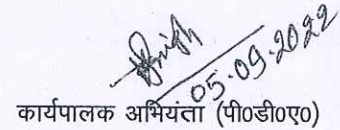 05.09.2022
कार्यपालक अभियंता (पी०डी०ए०)